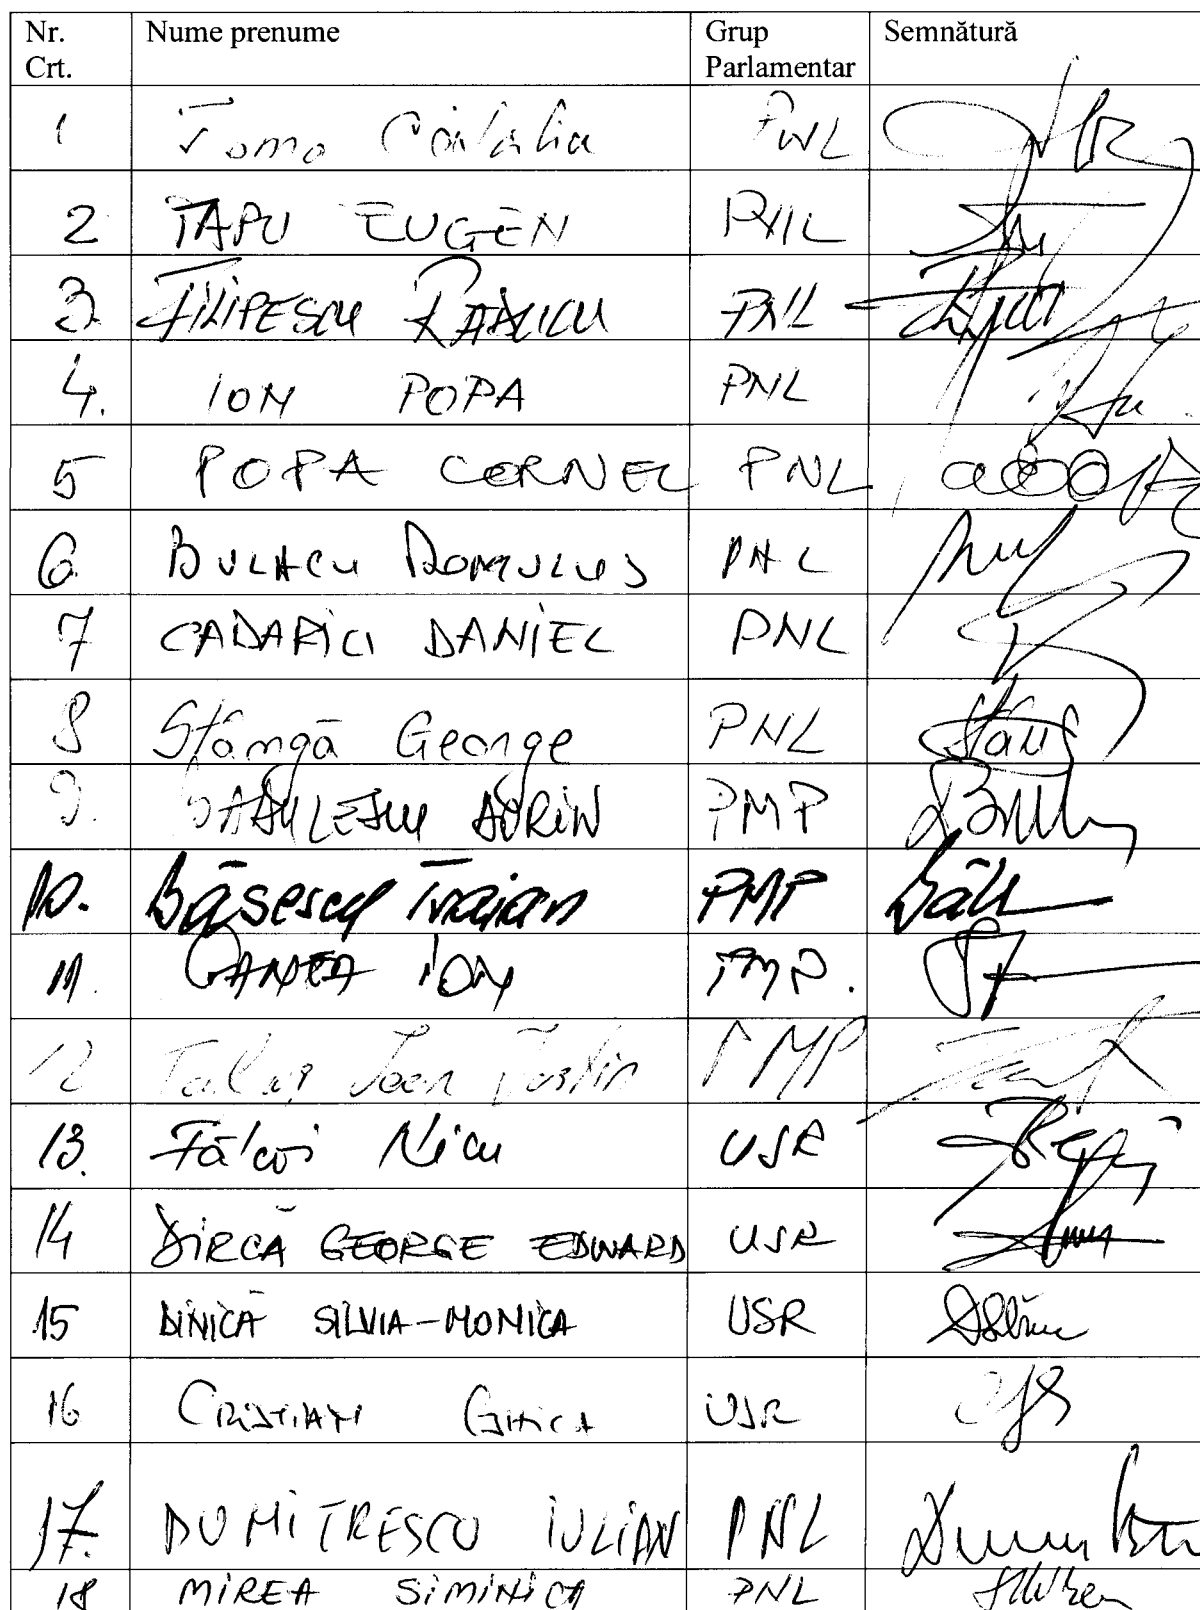 Nr. Crt. Nume prenume Grup Parlamentar Semnătură
1 Toma Cătălin PNL
2 ȚAPU EUGEN PNL
3. FILIPESCU RĂDUCU PNL
4. ION POPA PNL
5 POPA CORNEL PNL
6. BULACU ROMULUS PNL
7 CADARIU DANIEL PNL
8 Stângă George PNL
9. BĂDULESCU DORIN PMP
10. Băsescu Traian PMP
11. GANEA ION PMP.
12 Talpoș Ioan Iustin PMP
13. Fălcoi Nicu USR
14 DIRCĂ GEORGE EDWARD USR
15 DINICĂ SILVIA-MONICA USR
16 CRISTIAN GHICA USR
17. DUMITRESCU IULIAN PNL
18 MIREA SIMINICA PNL